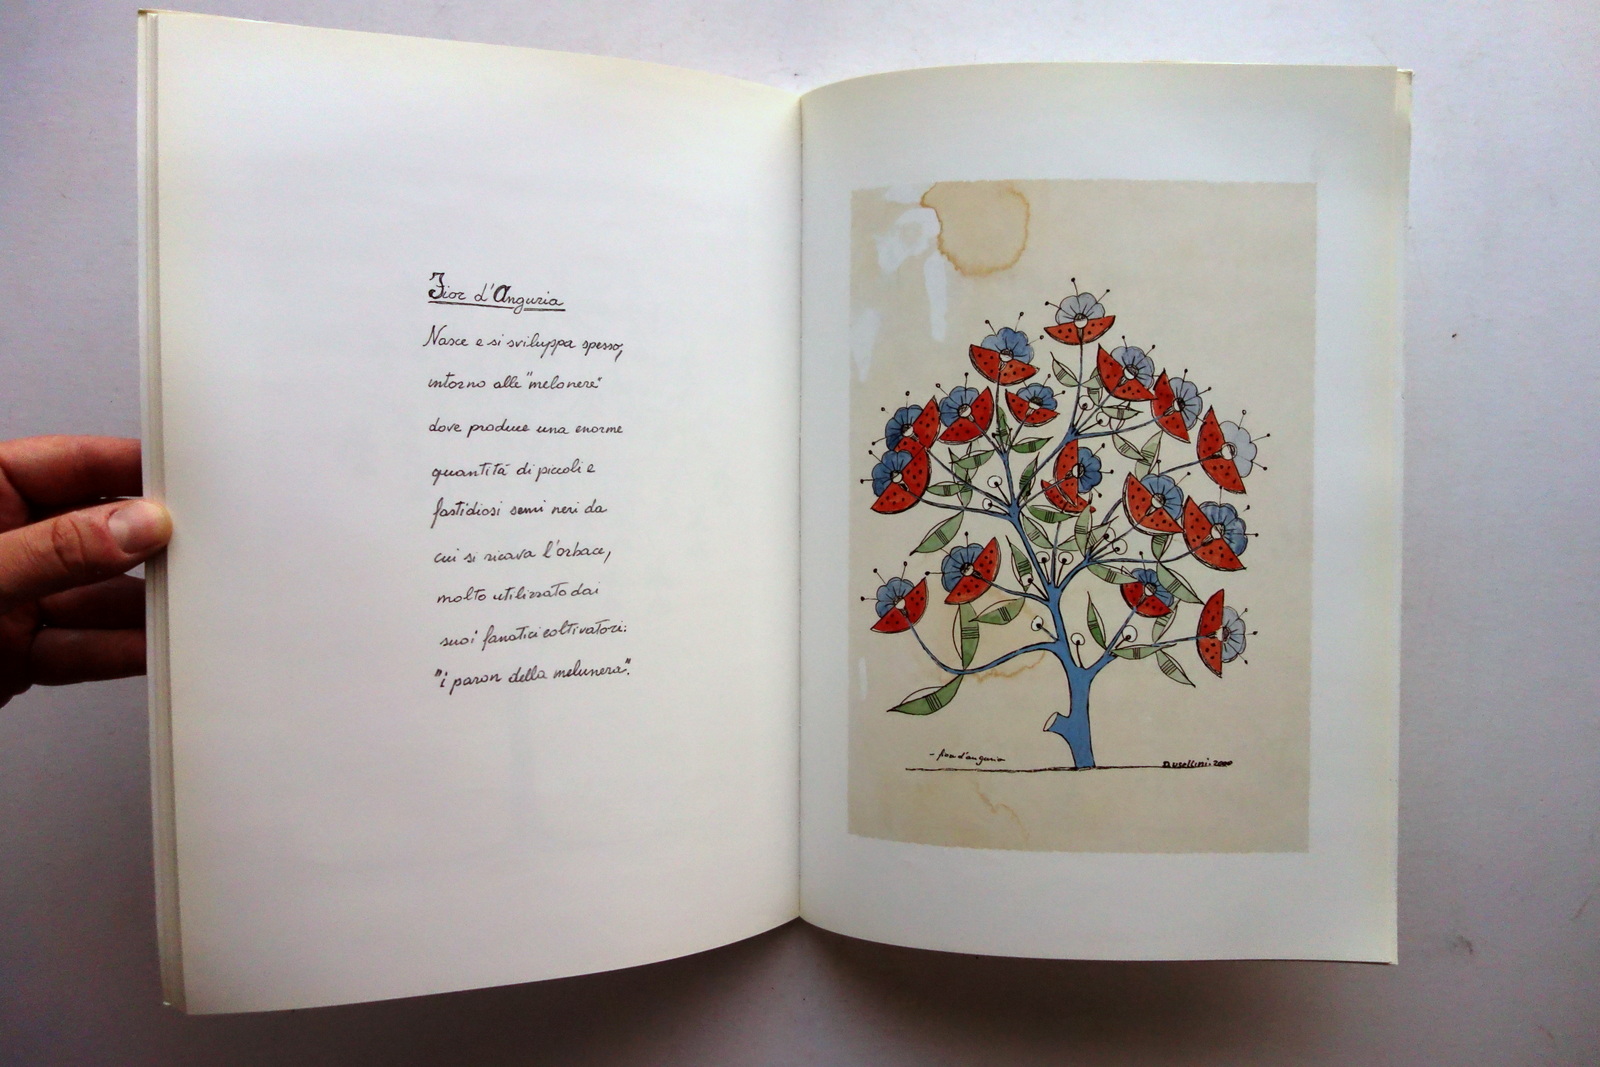 Fior d'Anguria
Nasce e si sviluppa spesso,
intorno alle "melonere"
dove produce una enorme
quantità di piccoli e
fastidiosi semi neri da
cui si ricava l'orbace,
molto utilizzato dai
suoi fanatici coltivatori:
"i paron della melunera".
- fior d'anguria
D. Usellini. 2000